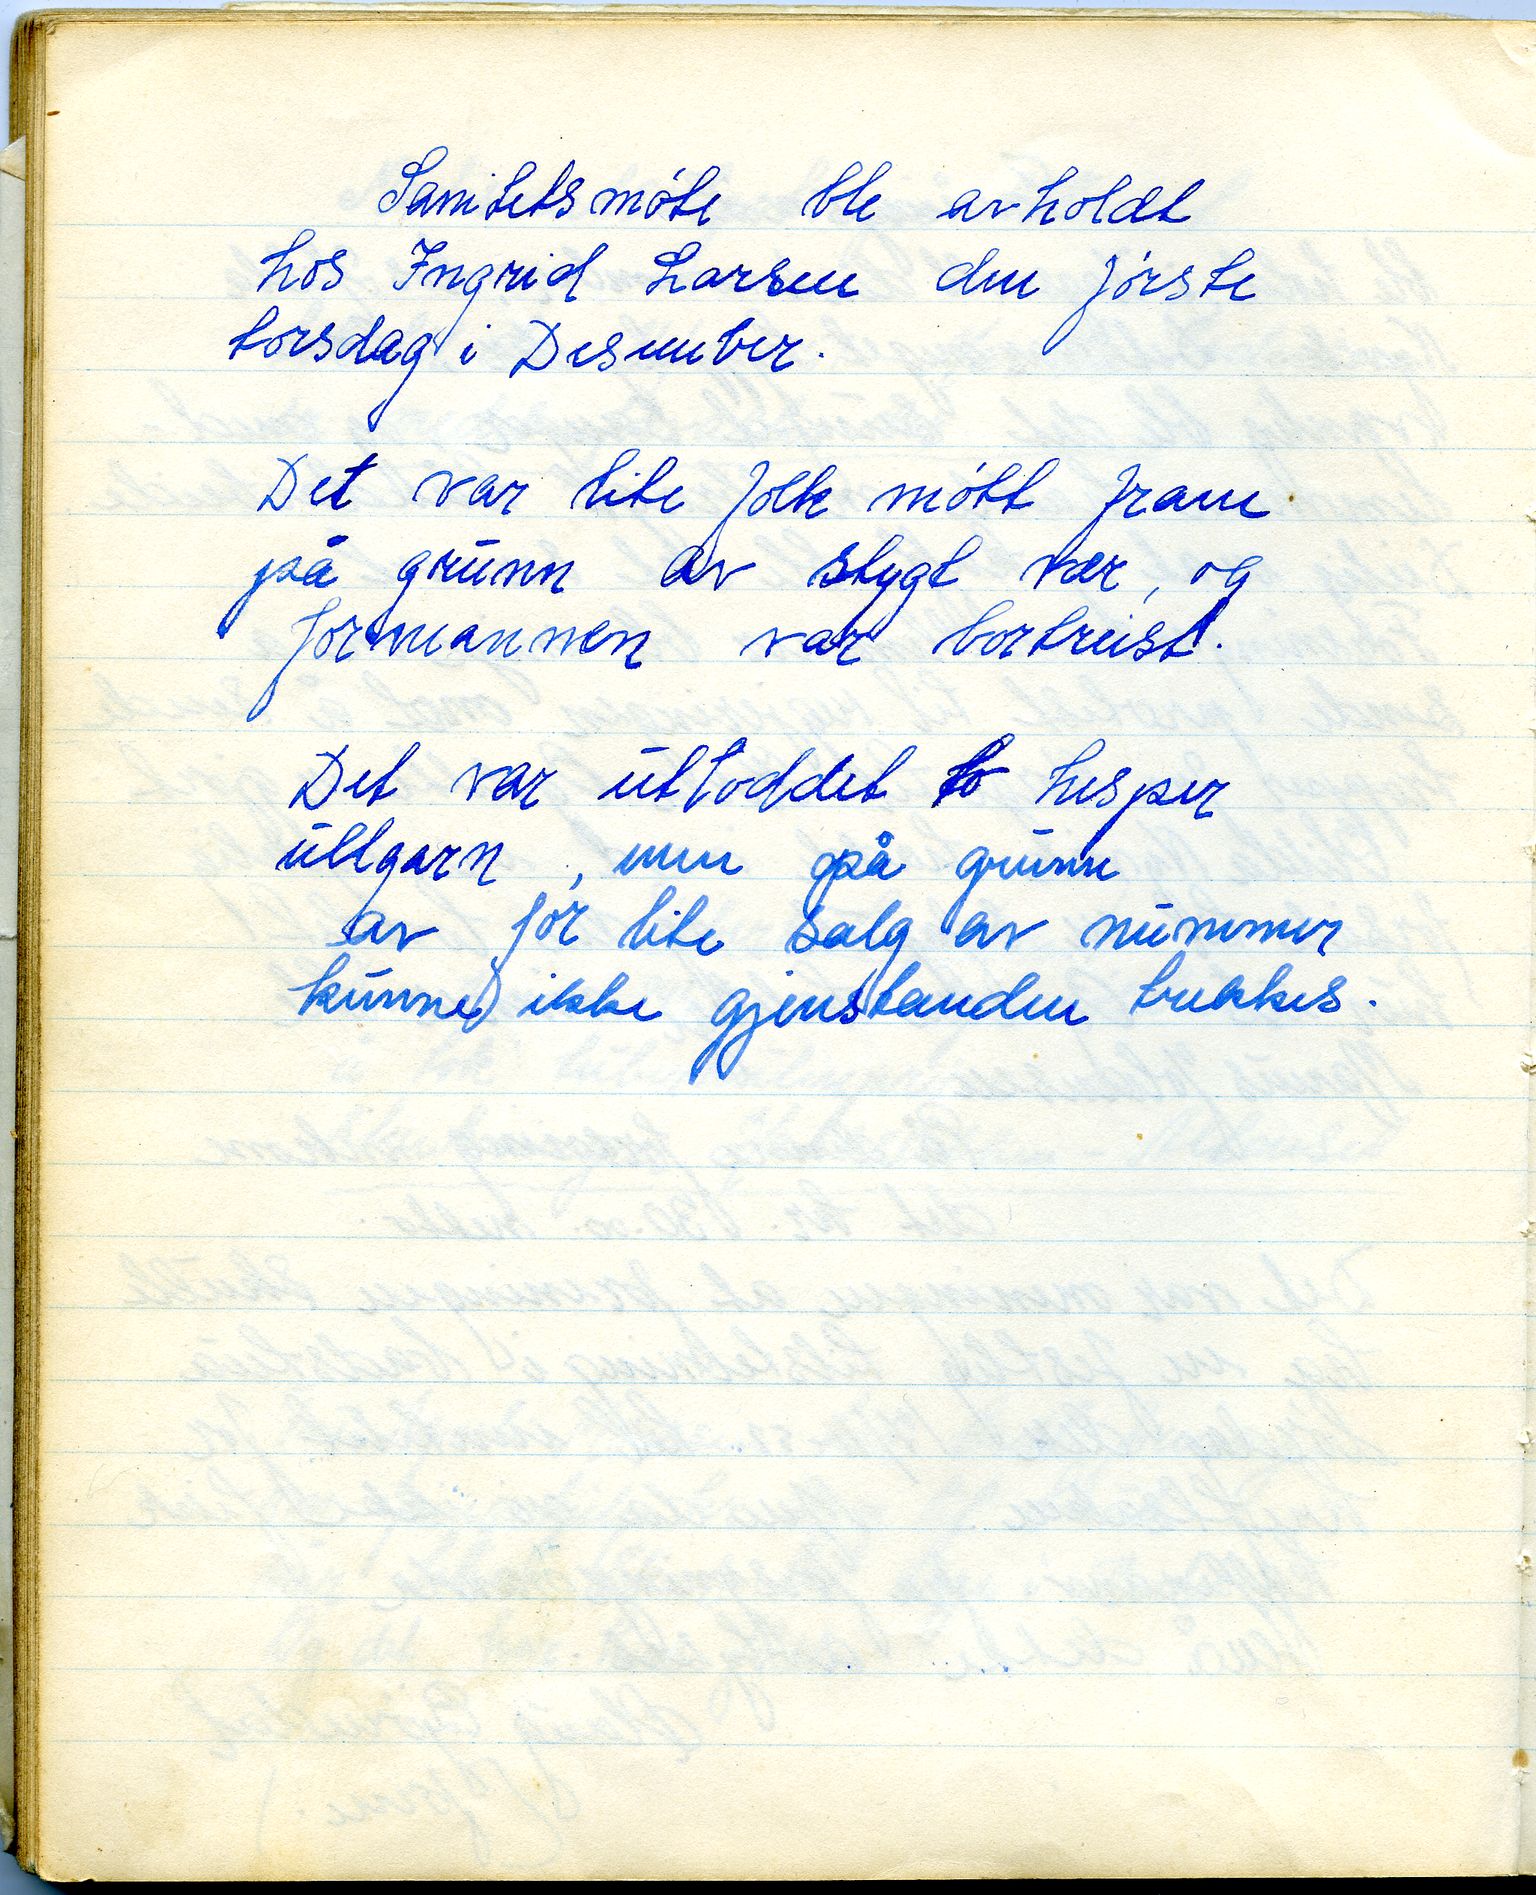 Sanitetsmøte ble avholdt
hos Ingrid Larsen den første
torsdag i Desember.
Det var lite folk møtt fram
på grunn av stygt vær, og
formannen var bortreist.
Det var utloddet to hesper
ullgarn, men på grunn
av for lite salg av nummer
kunne ikke gjenstanden trekkes.